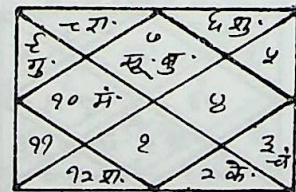 ८ रा. ७ ६ शु.
९ गु. सू. बु. ५
१० मं. ४
११ १ ३ चं
१२ श. २ के.